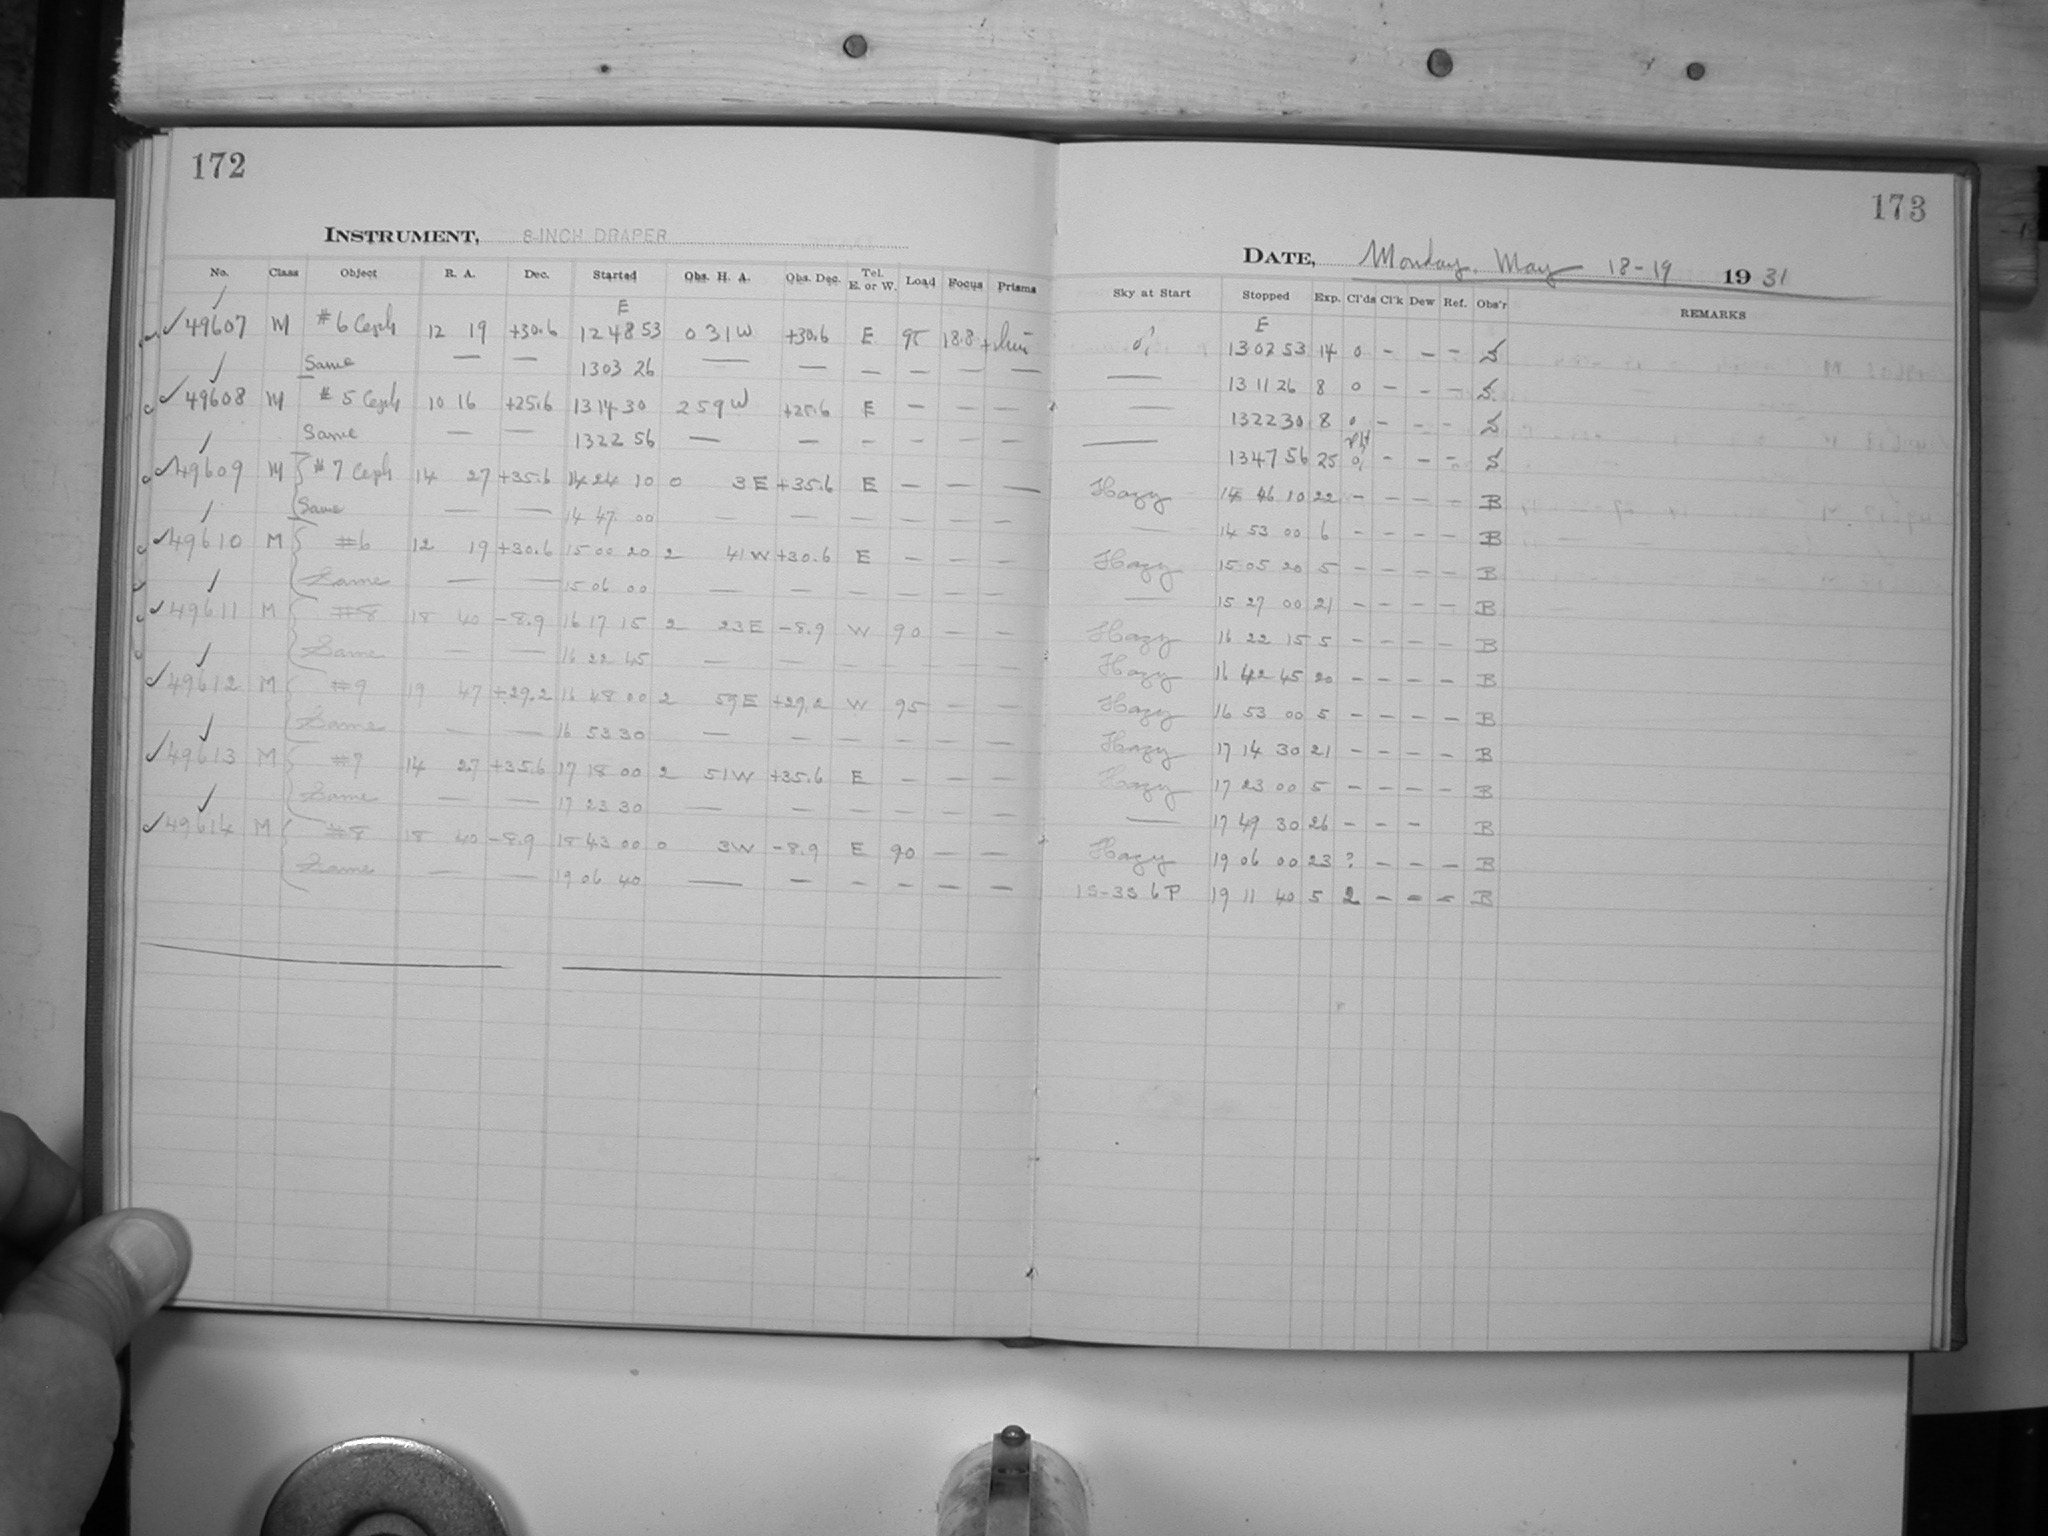 172
INSTRUMENT, 8-INCH DRAPER
No. Class Object R. A. Dec. Started Obs. H. A. Obs. Dec. Tel. E. or W. Load Focus Prisms
E
49607 M #6 Ceph 12 19 +30.6 12 48 53 0 31 W +30.6 E 95 18.8
Same — — 13 03 26 — — — — — —
49608 M #5 Ceph 10 16 +25.6 13 14 30 2 59 W +25.6 E — — —
Same — — 13 22 56 — — — — — —
49609 M #7 Ceph 14 27 +35.6 14 24 10 0 3 E +35.6 E — — —
Same — — 14 47 00 — — — — — —
49610 M #6 12 19 +30.6 15 00 20 2 41 W +30.6 E — — —
Same — — 15 06 00 — — — — — —
49611 M #8 18 40 -8.9 16 17 15 2 23 E -8.9 W 90 — —
Same — — 16 22 45 — — — — — —
49612 M #9 19 47 +29.2 16 48 00 2 59 E +29.2 W 95 — —
Same — — 16 53 30 — — — — — —
49613 M #7 14 27 +35.6 17 18 00 2 51 W +35.6 E — — —
Same — — 17 23 30 — — — — — —
49614 M #8 18 40 -8.9 18 43 00 0 3 W -8.9 E 90 — —
Same — — 19 06 40 — — — — — —
173
DATE, Monday, May 18-19 1931
Sky at Start Stopped Exp. Cl'ds Cl'k Dew Ref. Obs'r REMARKS
E
13 02 53 14 0 — — — S
— 13 11 26 8 0 — — — S
— 13 22 30 8 0 — — — S
— 13 47 56 25 — — — S
Hazy 14 46 10 22 — — — — B
— 14 53 00 6 — — — — B
Hazy 15 05 20 5 — — — — B
— 15 27 00 21 — — — — B
Hazy 16 22 15 5 — — — — B
Hazy 16 42 45 20 — — — — B
Hazy 16 53 00 5 — — — — B
Hazy 17 14 30 21 — — — — B
Hazy 17 23 00 5 — — — — B
— 17 49 30 26 — — — B
Hazy 19 06 00 23 ? — — — B
1S-3S 6P 19 11 40 5 2 — — — B